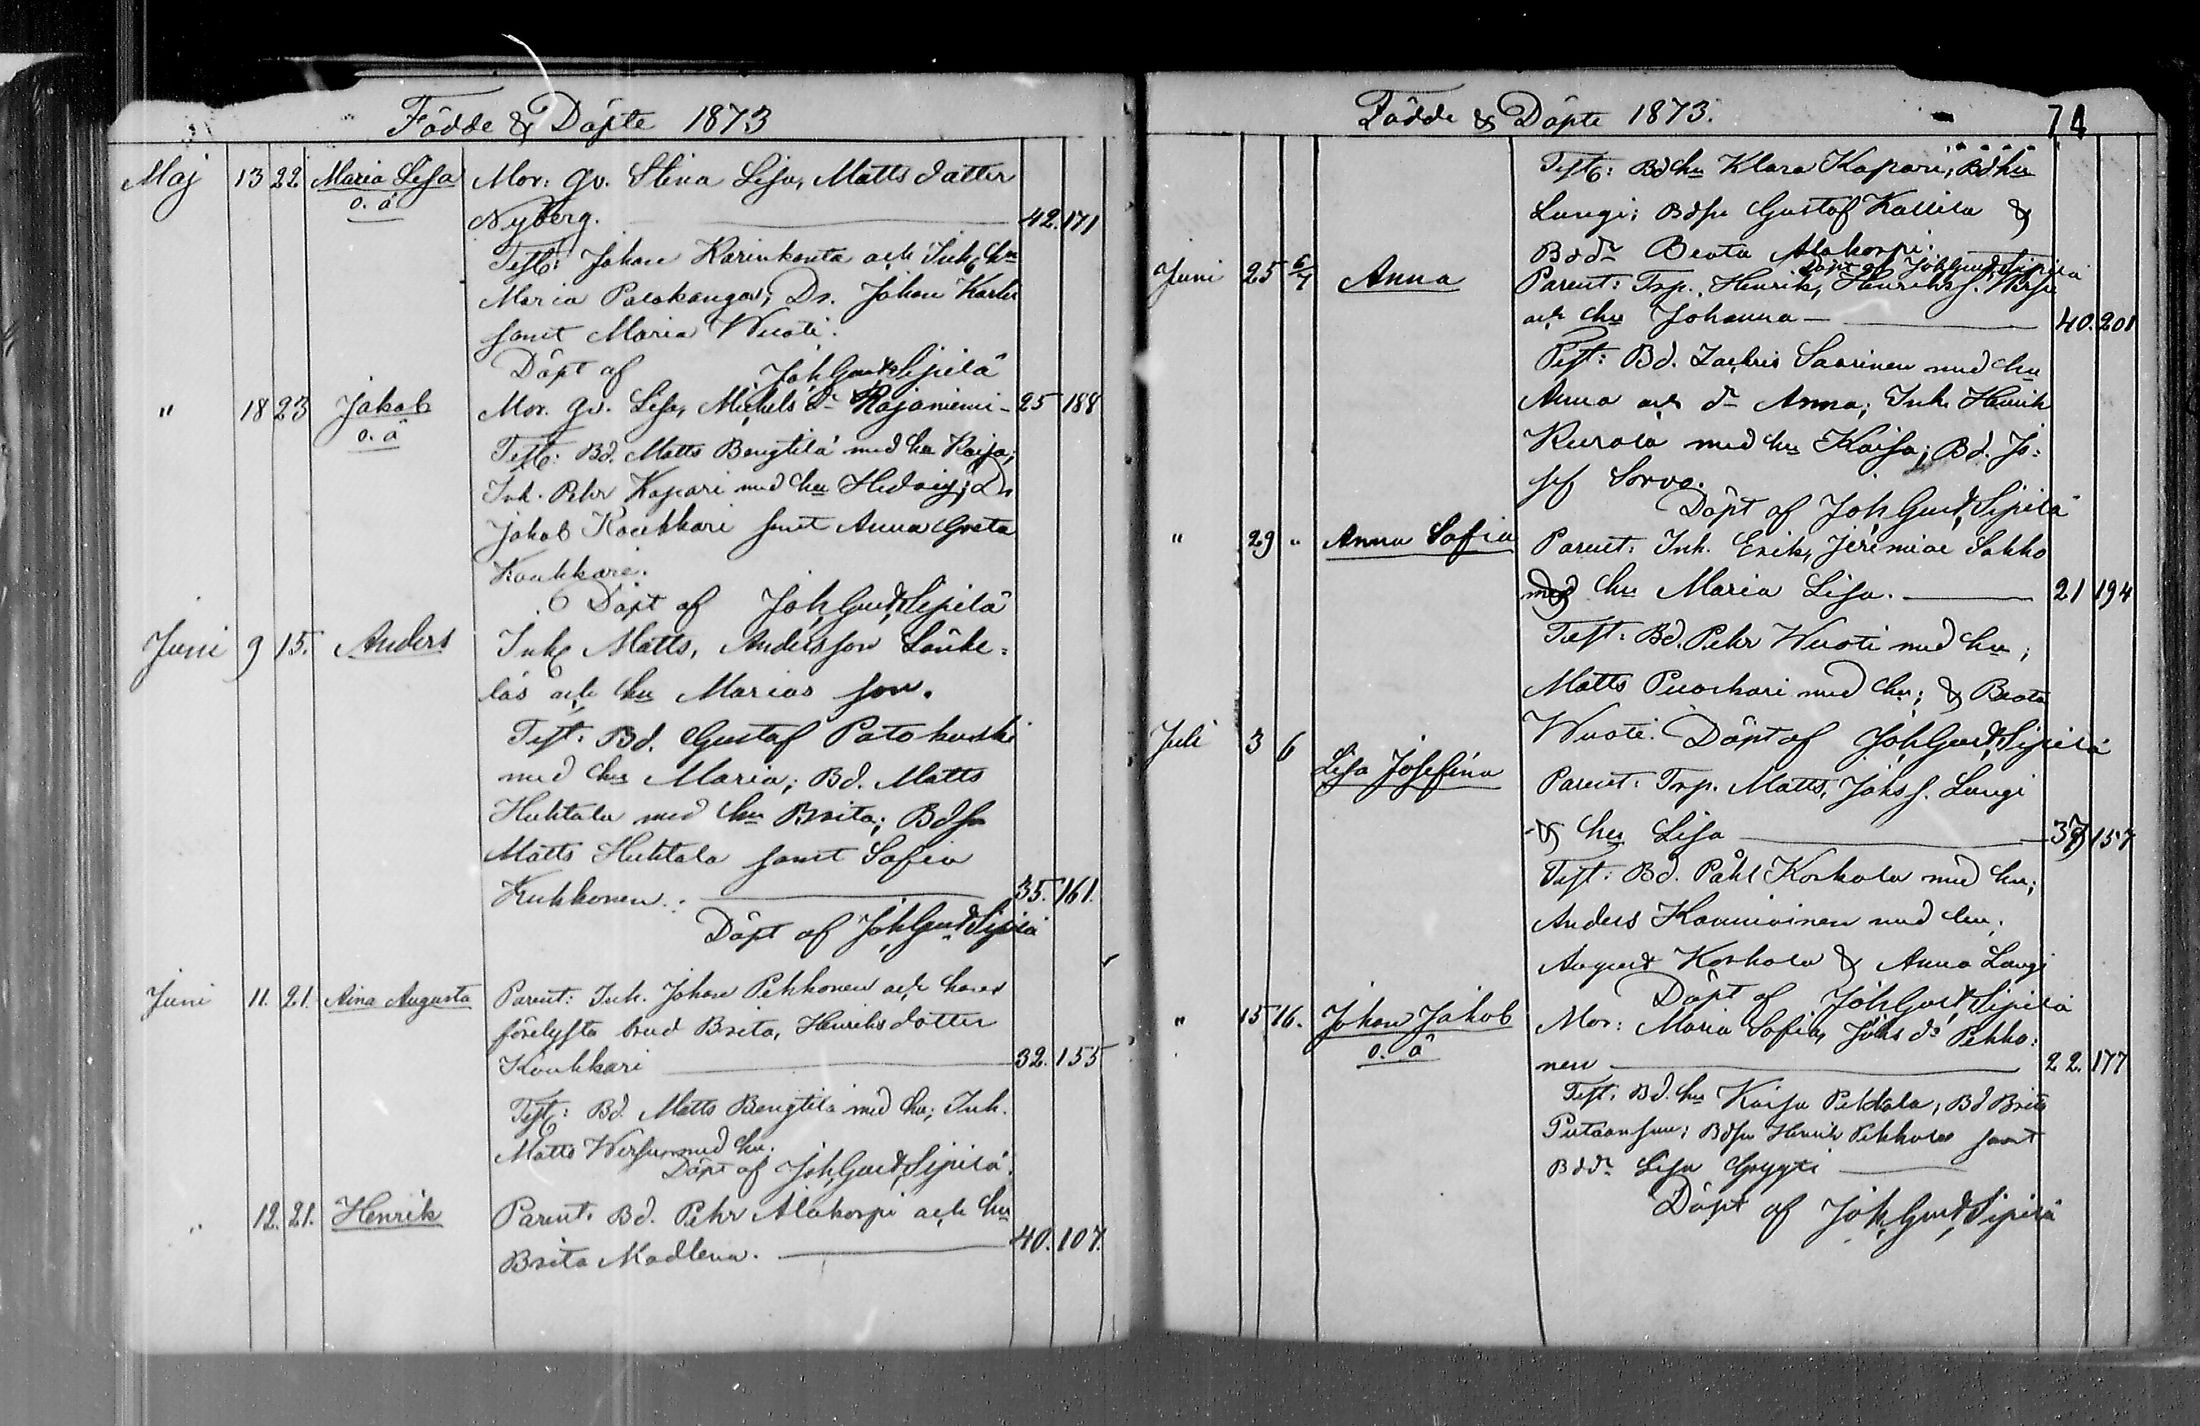 Födde & Döpte 1873
Maj 13 22 Maria Lisa Mor: gv. Stina Lisa, Matts dotter
o. ä Nyberg. 42. 171
Test: Johan Karinkanta och Inh. hu
Maria Palokangas; Dr. Johan Karlu
samt Maria Wuoti.
Döpt af Joh Gust Sipilä
" 18 23 Jakob Mor. gv. Lisa, Michels dr Rajaniemi - 25 188
o. ä
Test: Bd. Matts Bengtilä med hu Kaisa;
Inh. Pehr Kapari med hu Hedvig; Dr
Jakob Koukkari samt Anna Greta
Koukkari.
Döpt af Joh Gust Sipilä
Juni 9 15. Anders Inh Matts, Andersson
läs och hu Marias son.
Test: Bd. Gustaf Patokoski
med hu Maria; Bd. Matts
Huhtala med hu Brita; Bdsn
Matts Huhtala samt Sofia
Kukkonen. 35. 161.
Döpt af Joh Gust Sipilä
Juni 11. 21. Aina Augusta Parent: Inh. Johan Pekkonen och hans
förelyfta brud Brita, Henriks dotter
Koukkari 32. 155
Test: Bd. Matts Bengtilä med hu; Inh.
Matts med hu.
Döpt af Joh Gust Sipilä.
" 12. 21. Henrik Parent. Bd. Pehr Alakorpi och hu
Brita Madlena. 40. 107.
Födde & Döpte 1873. 74
Test: Bd hu Klara Kapari; Bd hu
Laugi; Bdsn Gustaf Kallila &
Bddr Beata Alakorpi.
Döpt af Joh Gust Sipilä
Juni 25 6/7 Anna Parent: Trp. Henrik, Henrikss.
och hu Johanna 40. 201
Test: Bd. Zachris Saarinen med hu
Anna och dr Anna; Inh. Henrik
Kurola med hu Kaisa; Bd. Jo=
sef Sorvo.
Döpt af Joh Gust Sipilä
" 29 " Anna Sofia Parent: Inh. Erik, Jeremiae Sakko
med hu Maria Lisa. 21 194
Test: Bd. Pehr Wuoti med hu;
Matts med hu; & Beata
Wuoti. Döpt af Joh Gust Sipilä
Juli 3 6 Lisa Josefina Parent: Trp. Matts, Johs s. Laugi
& hu Lisa 157
Test: Bd. Påhl Korkala med hu;
Anders med hu.
August Korkala & Anna Laugi
Döpt af Joh Gust Sipilä
" 15 16. Johan Jakob Mor: Maria Sofia, Johs dr Pekko=
o. ä nen 22. 177
Test. Bd. hu Kaisa Pekkala; Bd Brita
Bdsn Henrik Pekkala samt
Bddr Lisa
Döpt af Joh Gust Sipilä